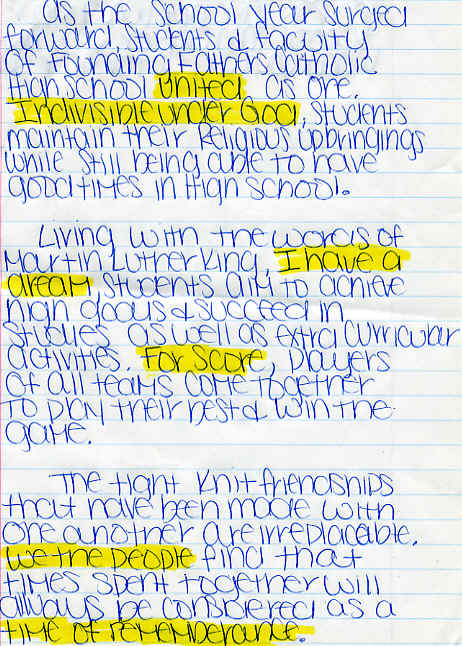 As the School year surged
forward, Students & faculty
of Founding Fathers Catholic
High School United as one.
Indivisible under God, students
maintain their Religious upbringings
while still being able to have
good times in High School.
Living with the words of
Martin Luther King, I have a
dream, students aim to achieve
high goals & succeed in
studies as well as extra curricular
activities. For Score, players
of all teams come together
to play their best & win the
game.
The tight Knit friendships
that have been made with
one another are irreplacable.
We the people find that
times spent together will
always be considered as a
time of rememberance.